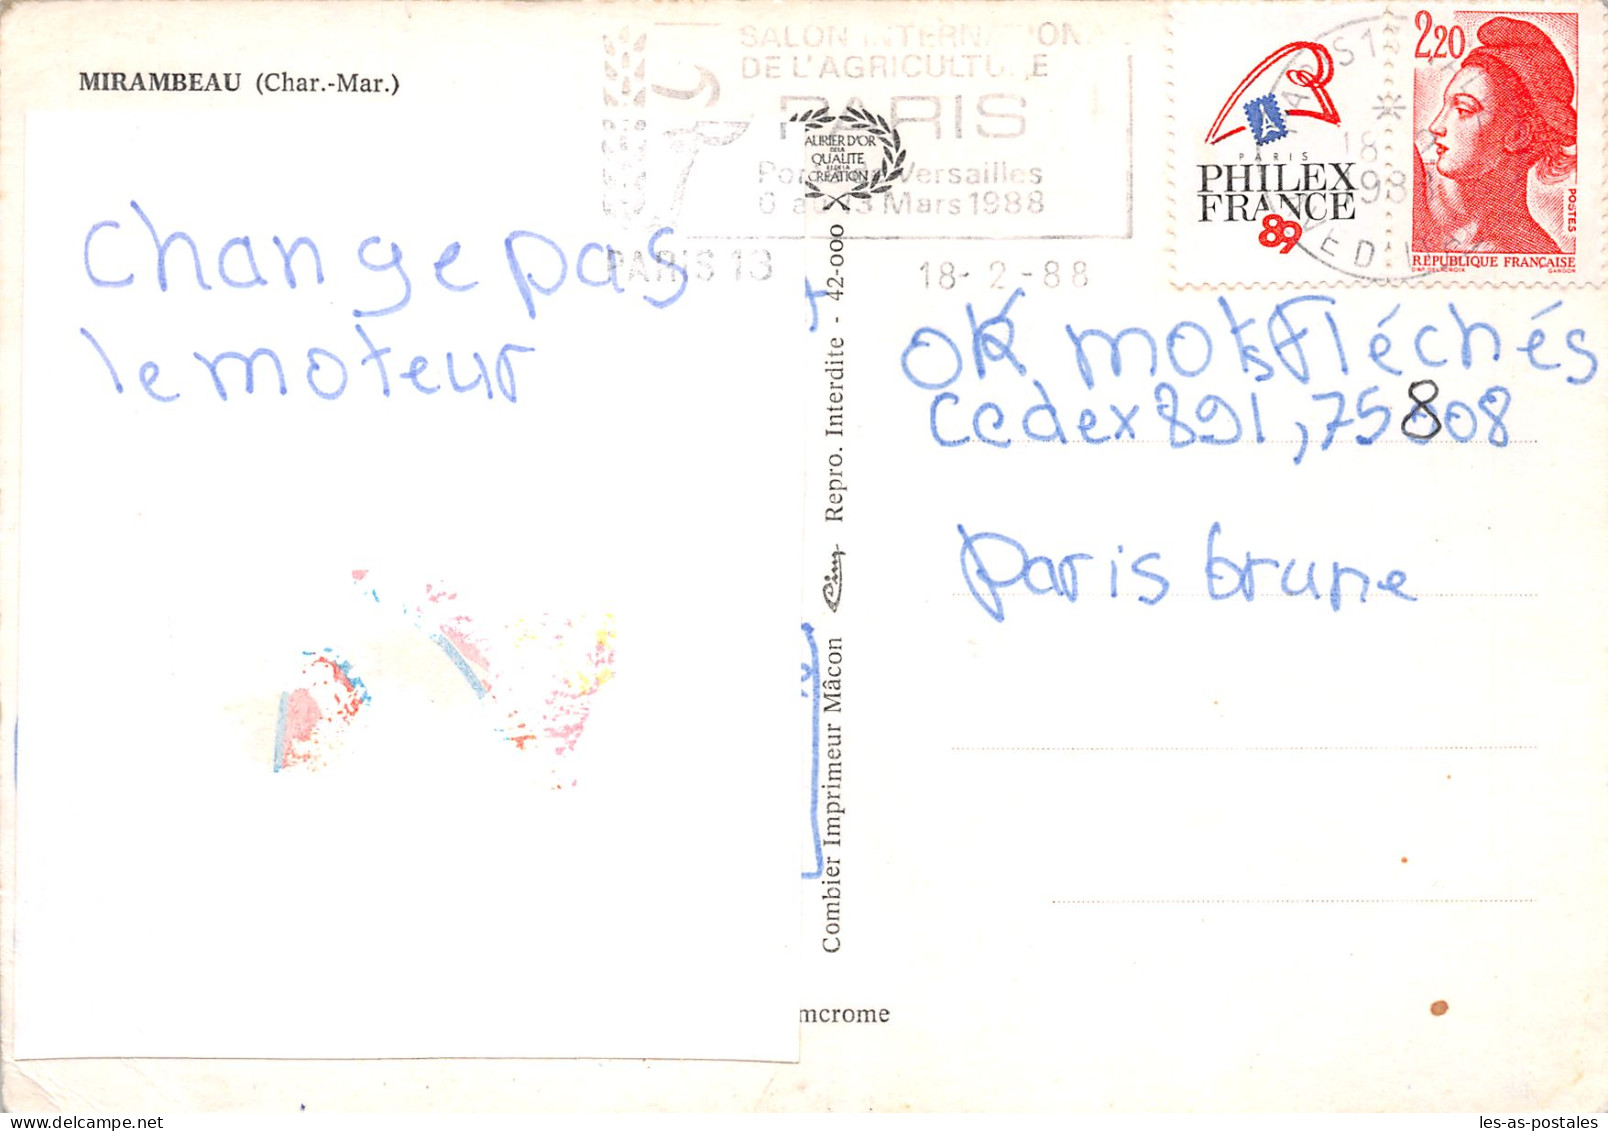 MIRAMBEAU (Char.-Mar.)
SALON INTERNATIONAL
DE L'AGRICULTURE
PARIS
Porte de Versailles
6 au 13 Mars 1988
PARIS 13
18-2-88
LAURIER D'OR
DE LA
QUALITE
ET DE LA
CREATION
PARIS
PHILEX
FRANCE
89
2,20
POSTES
RÉPUBLIQUE FRANÇAISE
D'AP. DELACROIX GANDON
change pas
le moteur
OK mots Fléchés
cedex 891, 75808
Paris brune
Combier Imprimeur Mâcon Cim Repro. Interdite - 42-000
mcrome
les-as-postales